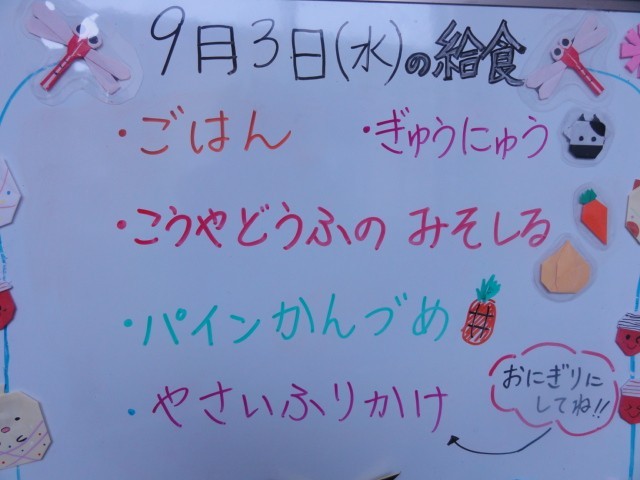 9月3日(水)の給食
・ごはん ・ぎゅうにゅう
・こうやどうふの みそしる
・パインかんづめ
・やさいふりかけ
おにぎりに
してね!!